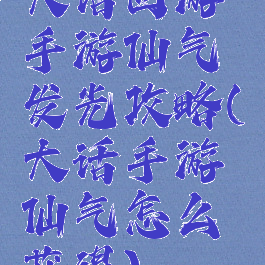 大话西游
手游仙气
发先攻略(
大话手游
仙气怎么
获得)